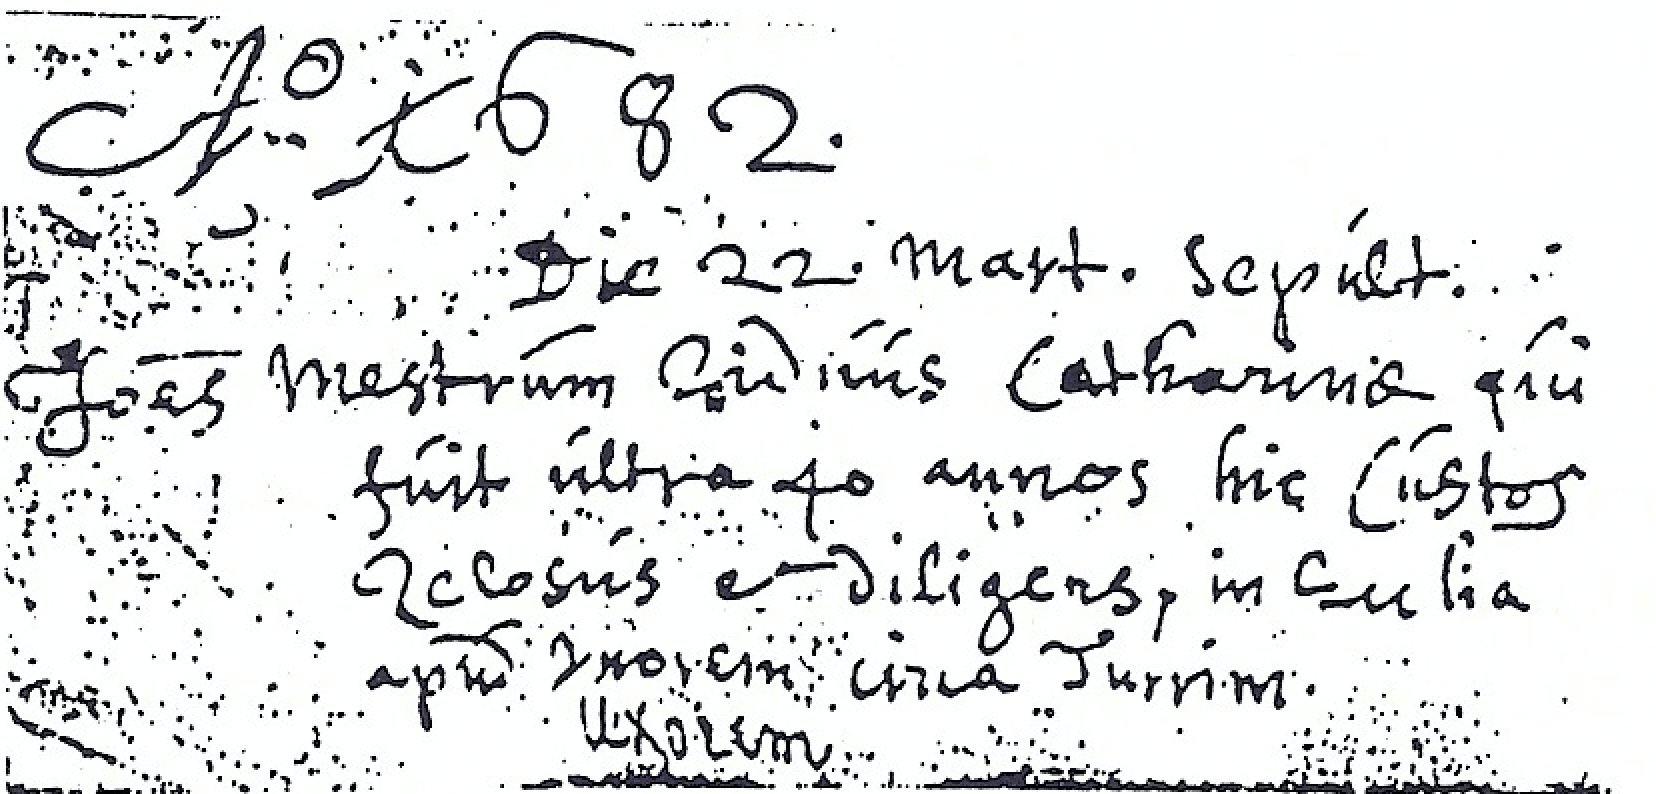 Aº. 1682.
Die 22. Mart. Sepúlt.
Joēs Mestrúm Viduús Catharina qúi
fúit últra 40 annos hic Cústos
Zelosús et diligens, in Ecclia
apud Vxorem circa Turrim.
Uxorem